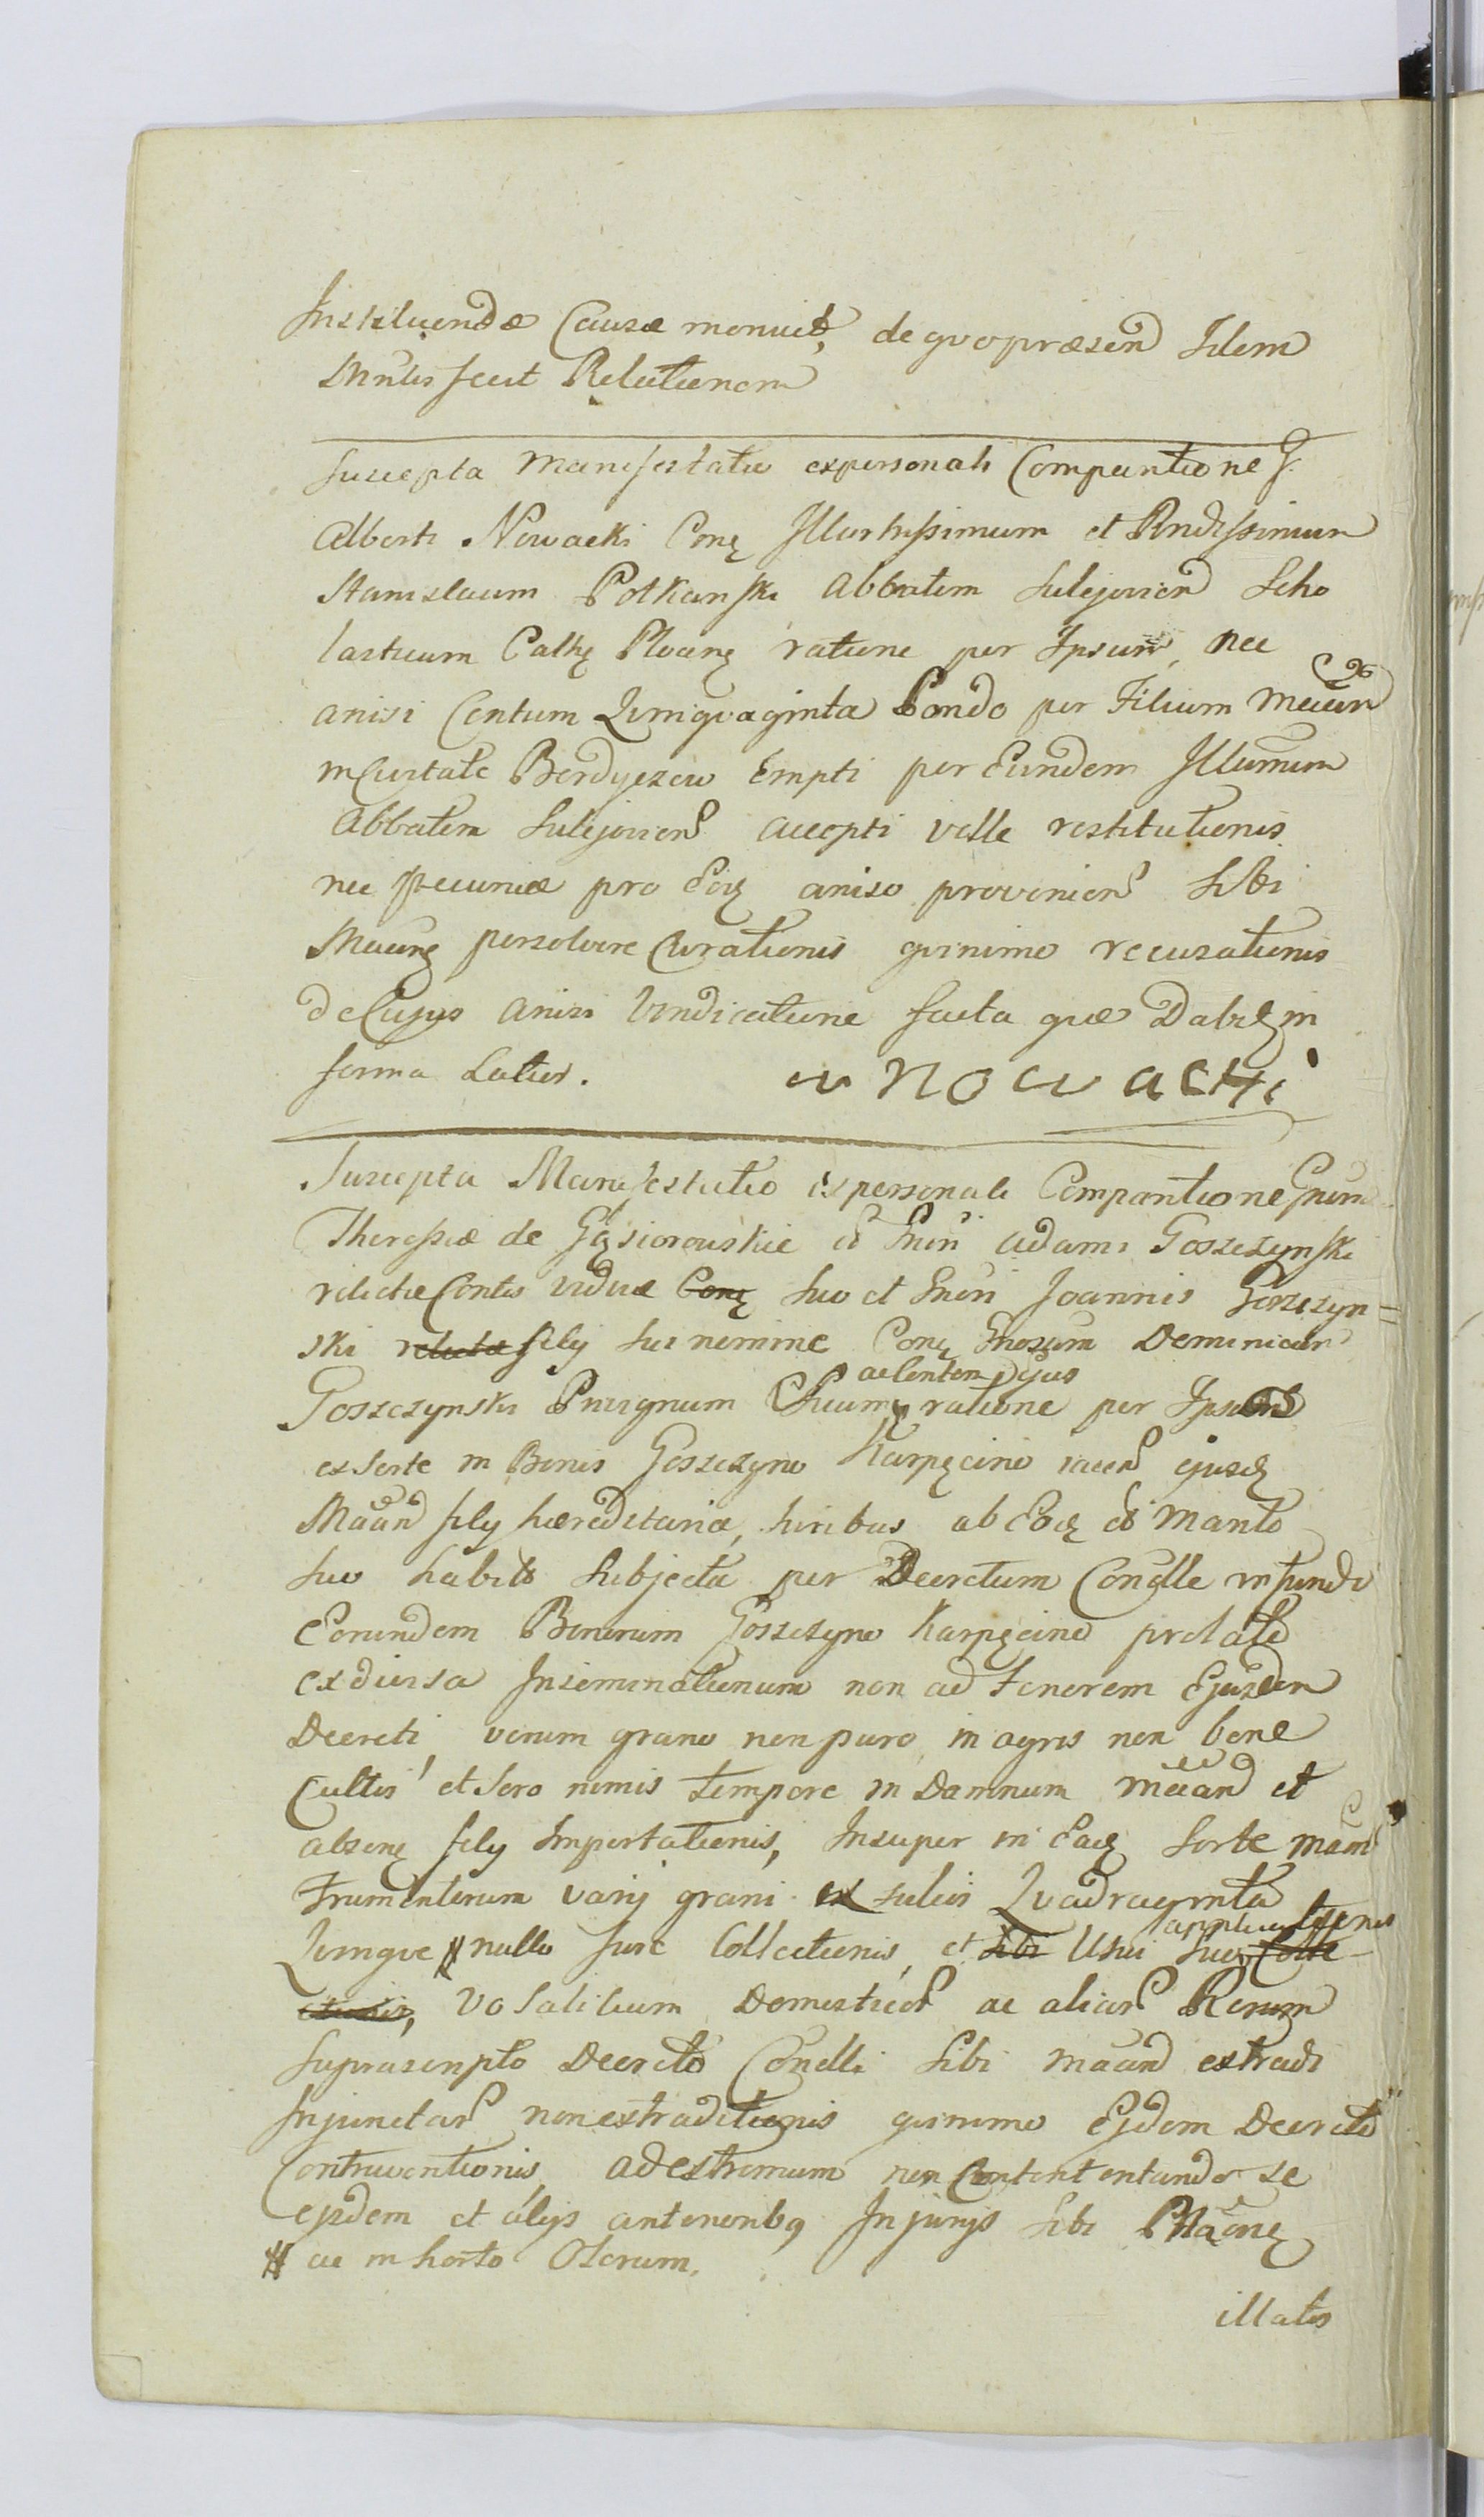 Instituendæ Causæ monuit, de quo præsen Idem
Mnlis fecit Relationem
Suscepta Manifestatio ex personali Comparitione F.
Alberti Nowacki Conę Illustrissimum et Rndissimum
Stanislaum Potkanski Abbatem Sulejovien Scho
lasticum Cathę Plocenę ratione per Ipsum, nec
anisi Centum Quinquaginta Pondo per Filium Mean
in Civitate Berdyczew Empti per Eundem Illumum
Abbatem Sulejovien accepti velle restitutionis
nec pecuniæ pro Eoę aniso provenien Sibi
Maenę persolvere Curationis quinimo recusationis
de Cujus anisi Vindicatione facta quæ Dabę in
forma Latius. W Nowacki
Suscepta Manifestatio ex personali Comparitione Gnum
Theressiæ de Gąsiorowskie et Gnin Adami Goszczynski
relictæ Contis viduæ Conę suo et Gnin Joannis Goszczyn=
ski relictæ filij sui nomine Conę Gnosum Dominicum
Goszczynski Privignum Suum ac lentem Ejus ratione per Ipsum
ex Sorte in Bonis Goszczyno Karpęcino jacen ejusdę
Maan filij hæreditaria, juribus ab Eoę et Marito
suo habitis Subjecta per Decretum Condlle in fundo
Eorundem Bonorum Goszczyno Karpęcino prolato
ex divisa Inseminationum non ad tenorem Ejusdem
Decreti, verum grano non puro, in agris non bene
Cultis et Sero nimis tempore in Damnum Maan et
absenę filij Importationis, Insuper in Eaę Sorte Maan
Frumentorum varij grani ex sulcis Quadraginta
Quinque # nullo Jure Collectionis, et sibi Usui Suo applicationis Colle
ctionis, Volatilium Domesticor ac aliar Rerum
Suprascripto Decreto Condlli Sibi Maan extradi
Injunctar non extraditionis quinimo Ejdem Decreto
Contraventionis, ad extremum non Contentando se
ejsdem et alijs anterioribę Injurijs Sibi Maonę
# ac in horto Olerum.
illatis